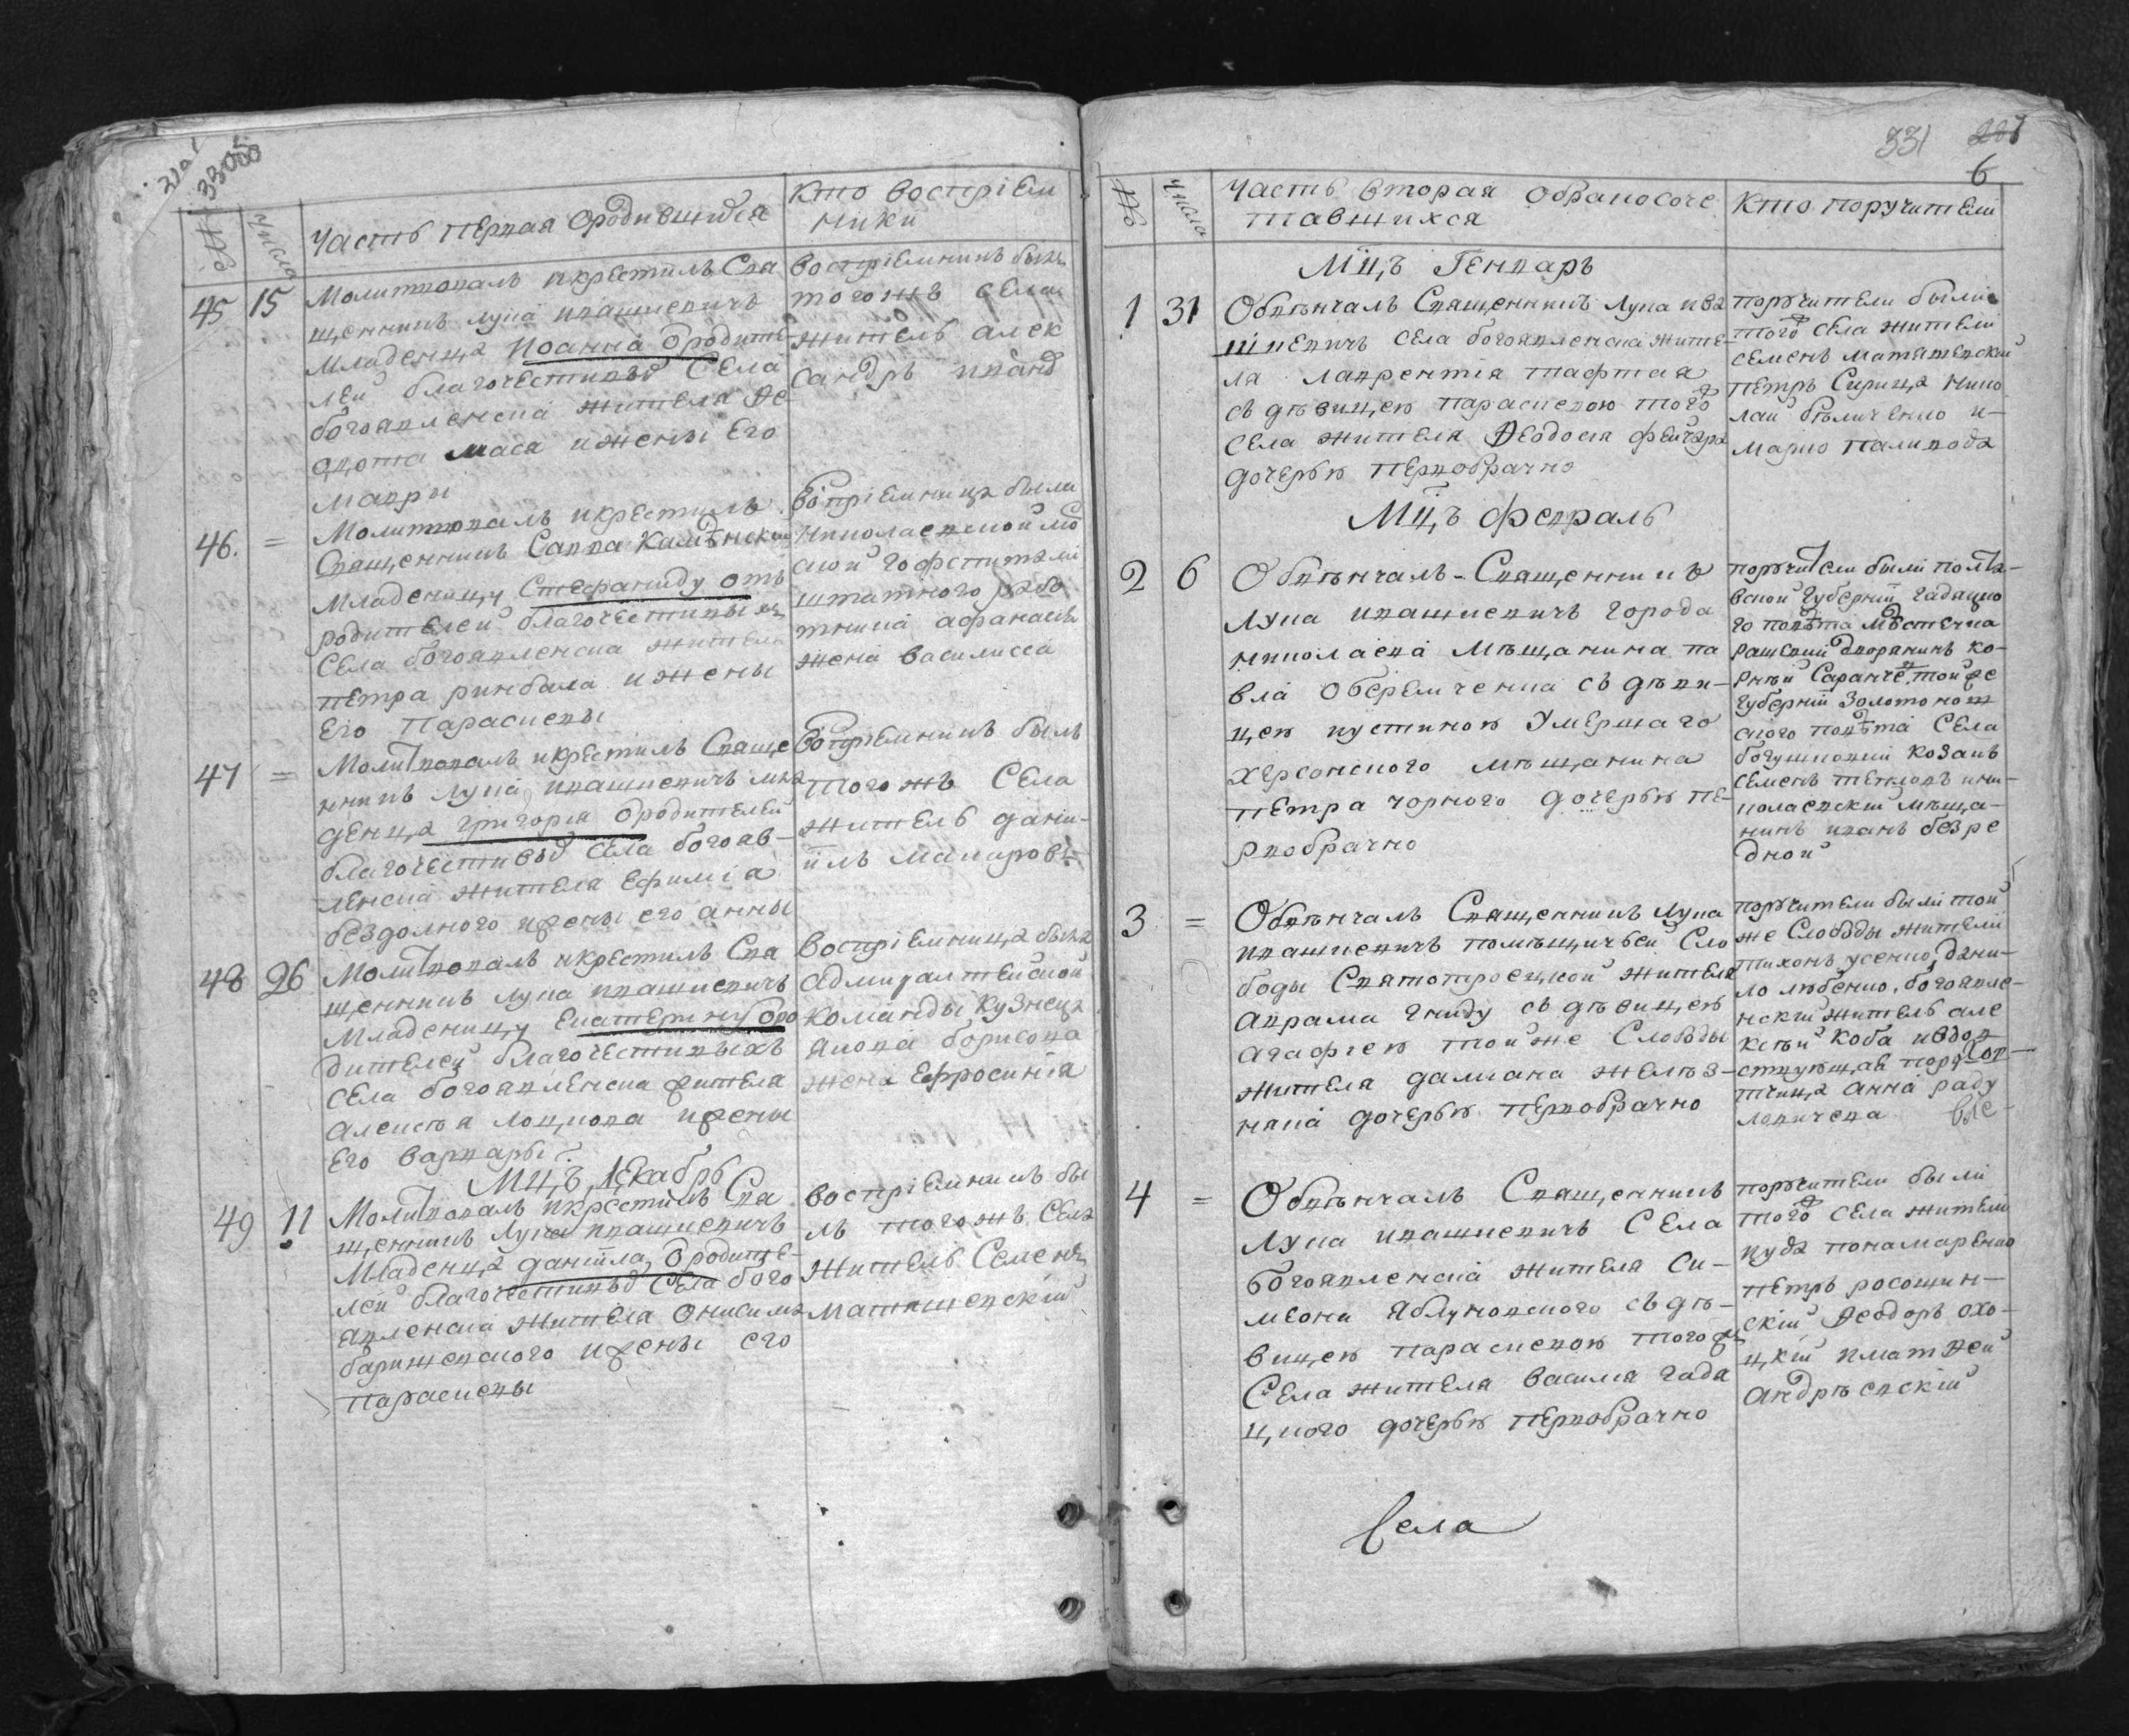 №
Числа
Часть первая ородившихся
Кто воспріем
ники
45
15
Молитвовалъ икрестилъ Свя
щенникъ лука ивашкевичъ
младенца иоанна ородите
лей благочестивыхъ Села
богоявленска жителя Ѳе
одота маса ижены Его
мавры
воспріемникъ былъ
тогожъ села
житель алек
сандръ
46.
=
Молитвовалъ икрестилъ
Священникъ Савва Каменскій
младеницу Стефаниду отъ
родителей благочестивыхъ
Села богоявленска жителя
петра ринбала ижены
Его параскевы
Воспріемница была
николаевской мо
ской гофспитали
штатного
афанасія
жена василисса
47
=
Молитвовалъ икрестилъ Свяще
нникъ лука ивашкевичъ мла
денца григорія ородителей
благочестивыхъ села богояв-
ленска жителя Ефимія
бездолного ижены его анны
Воспріемникъ былъ
того жъ Села
житель дані-
илъ
48
26
Молитвовалъ икрестилъ Свя
щенникъ лука ивашкевичъ
младеницу Екатерину оро
дителей благочестивыхъ
Села богоявленска жителя
алексѣя ижены
Его варвары
воспріемница была
адмиралтейской
команды Кузнеца
якова борисова
жена Ефросинія
Мцъ Декабрь
49
11
Молитвовалъ икрестилъ Свя
щенникъ лука ивашкевичъ
младенца даніила, ородите-
лей благочестивыхъ Села бого
явленска жителя онисима
баришевского ижены его
параскевы
воспріемникъ бы
лъ того жъ Села
житель Семенъ
матяшевскій
331
6
№
Числа
Часть вторая обракосоче
тавшихся
Кто поручители
Мцъ Генварь
1
31
Обвѣнчалъ Священникъ лука ива
шкевичъ села богоявленска жите-
ля лаврентія тафтая
съ дѣвицею параскевою того
села жителя Ѳеодосія фейчара
дочерью первобрачно
поручители были
того села жители
семенъ матяшевскій
петръ Сирица нико
лай бѣличенко и-
марко паливода
Мцъ февраль
2
6
Обвѣнчалъ Священникъ
лука ивашкевичъ города
николаева мѣщанина па
вла оберемченка съ дѣви-
цею иустиною умершаго
херсонского мѣщанина
петра чорного дочерью пе-
рвобрачно
поручители были полта-
вской губерніи гадяцко
го повѣта мѣстечка
рашевки дворянинъ ко-
рнѣй Саранче, той же
губерніи золотонош
ского повѣта Села
богушковки козакъ
семенъ
николаевскій мѣща-
нинъ иванъ безре
дной
3
=
Обвѣнчалъ Священникъ лука
ивашкевичъ помѣщичьей Сло
боды Святотроецкой жителя
аврама гниду съ дѣвицею
агафіею той же Слободы
жителя даміана желѣз-
няка дочерью первобрачно
поручители были той
же Слободы жители
тихонъ усенко, дани-
ло любенко, богоявле-
нскій житель але
ксѣй Коба
анна раду
4
=
Обвѣнчалъ Священникъ
лука ивашкевичъ Села
богоявленска жителя Си-
меона яблуновского съ дѣ-
вицею параскевою того ж
Села жителя василія гадя
цкого дочерью первобрачно
поручители были
того села жители
иуда понамаренко
петръ росошин-
скій Ѳеодоръ охо-
цкій иматѳей
андрѣевскій
Села